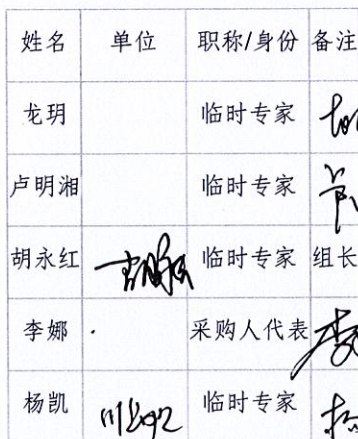 姓名 单位 职称/身份 备注
龙玥 临时专家
卢明湘 临时专家
胡永红 临时专家 组长
李娜 采购人代表
杨凯 临时专家